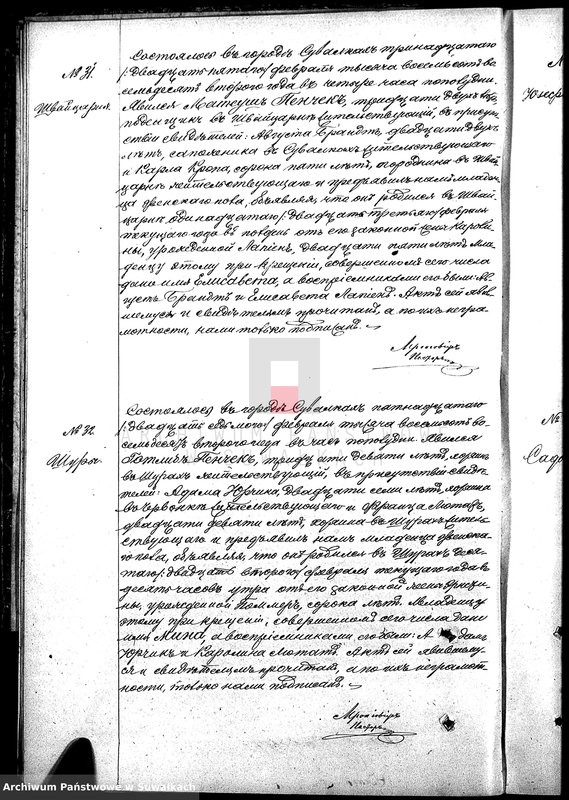 № 31.
Швайцарія
Состоялось въ городѣ Сувалкахъ тринадцатаго
/:двадцать пятаго/ февраля тысяча восемьсотъ во
семьдесятъ второго года въ четыре часа пополудни.
Явился Матеушъ Пенчекъ, тридцати двухъ лѣтъ,
поденщикъ въ Швайцаріи жительствующій, въ присут
ствіи свидѣтелей: Августа Брандтъ, двадцати двухъ
лѣтъ, сапожника въ Сувалкахъ жительствующаго
и Карла Кропа, сорока пяти лѣтъ, огородника въ Швай
царіи жительствующаго и предъявилъ намъ младен
ца женскаго пола, объявляя, что онъ родился въ Швай
царіи, одинадцатаго /:двадцать третьяго/ февраля
текущаго года въ полдень отъ его законной жены Кароли
ны, урожденной Лапіенъ, двадцати пяти лѣтъ. Мла
денцу этому при крещеніи, совершенномъ сего числа
дано имя Елисавета, а воспріемниками его были: Ав
густъ Брандтъ и Елисавета Лапіенъ. Актъ сей явив
шемуся и свидѣтелямъ прочитанъ, а по ихъ негра
мотности, нами только подписанъ.
Пасторъ
№ 32.
Шуры
Состоялось въ городѣ Сувалкахъ пятнадцатаго
/:двадцать седьмого/ февраля тысяча восемьсотъ во
семьдесятъ второго года въ часъ пополудни. Явился
Готлибъ Пенчекъ, тридцати девяти лѣтъ, хозяинъ
въ Шурахъ жительствующій, въ присутствіи свидѣ
телей: Адама Юрчика, двадцати семи лѣтъ, хозяина
въ жительствующаго и Франца Лютатъ,
двадцати девяти лѣтъ, хозяина въ Шурахъ житель
ствующаго и предъявилъ намъ младенца женска
го пола, объявляя, что онъ родился въ Шурахъ деся
таго /:двадцать второго/ февраля текущаго года въ
десять часовъ утра отъ его законной жены
ны, урожденной сорока лѣтъ. Младенцу
этому при крещеніи, совершенномъ сего числа дано
имя Мина, а воспріемниками его были: Адамъ
Юрчикъ и Каролина Лютатъ. Актъ сей явившему
ся и свидѣтелямъ прочитанъ, а по ихъ неграмот
ности, только нами подписанъ.
Пасторъ
№
Archiwum Państwowe w Suwałkach